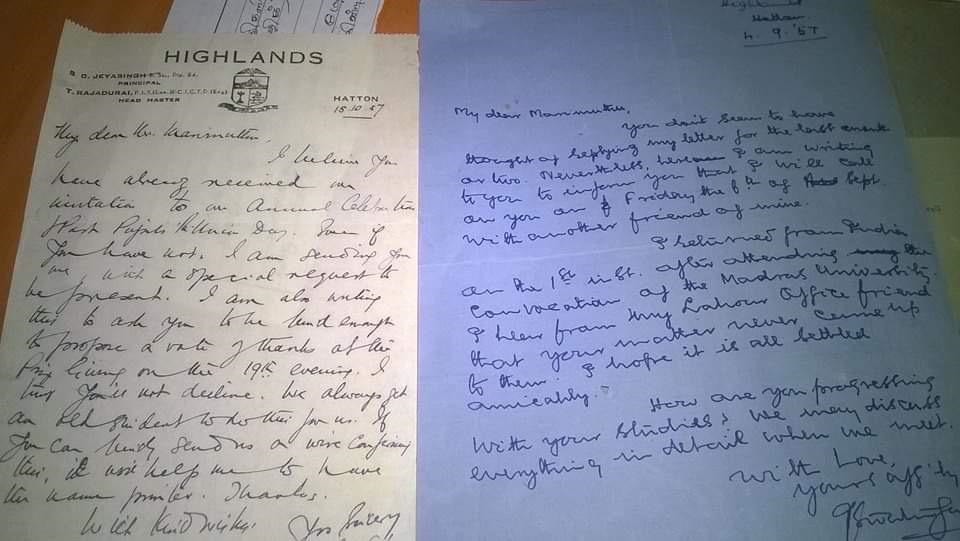 HIGHLANDS
R. D. JEYASINGH
PRINCIPAL
T. RAJADURAI,
HEAD MASTER
HATTON
15.10.57
My dear Mr. Manimuttu,
I believe you
have already received an
invitation to our Annual Celebration
& Past Pupils Reunion Day. Even if
you have not, I am sending you
one, with a special request to
be present. I am also writing
this to ask you to be kind enough
to propose a vote of thanks at the
Prize Giving on the 19th evening. I
trust you'll not decline. We always get
an old student to do this for us. If
you can kindly send us a wire confirming
this, it will help me to have
the name printed. Thanks.
With kind wishes,
Yrs Sincerely
Highlands
Hatton
4. 9. '57
My dear Manimuttu,
You don't seem to have
thought of replying my letter for the last month
or two. Nevertheless, I am writing
to you to inform you that I will call
on you on Friday the 6th of Sept.
with another friend of mine.
I returned from India
on the 1st inst. after attending the
Convocation of the Madras University.
I hear from my Labour Office friend
that your matter never came up
to them. I hope it is all settled
amicably.
How are you progressing
with your studies? We may discuss
everything in detail when we meet.
With Love,
Yours affly